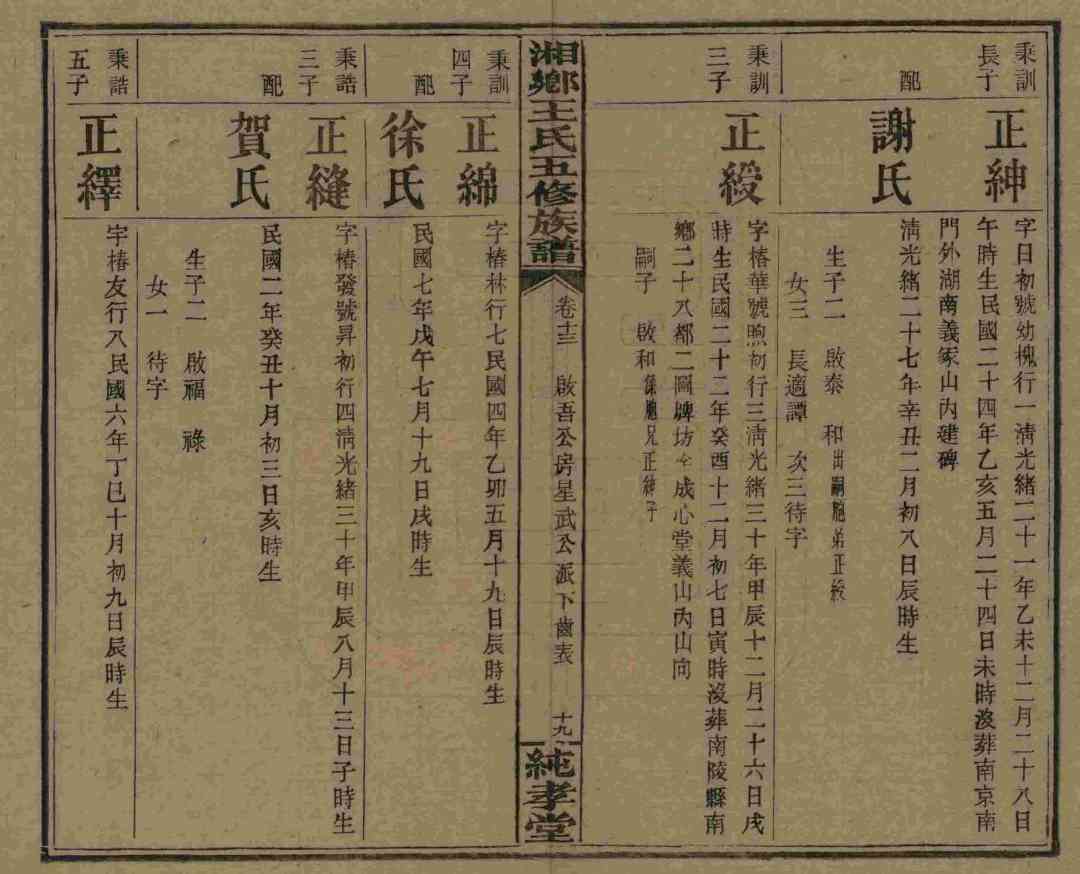 秉訓
長子
正紳
字日初號幼槐行一清光緒二十一年乙未十二月二十八日
午時生民國二十四年乙亥五月二十四日未時沒葬南京南
門外湖南義冢山內建碑
配
謝氏
清光緒二十七年辛丑二月初八日辰時生
生子二　啟泰　和出嗣胞弟正綬
女三　長適譚　次三待字
秉訓
三子
正綬
字椿華號煦初行三清光緒三十年甲辰十二月二十六日戌
時生民國二十二年癸酉十二月初七日寅時沒葬南陵縣南
鄉二十八都二圖牌坊仝成心堂義山內山向
嗣子　啟和係胞兄正紳子
湘鄉王氏五修族譜
卷十三　啟吾公房星武公派下齒表
十九
純孝堂
秉訓
四子
正綿
字椿林行七民國四年乙卯五月十九日辰時生
配
徐氏
民國七年戊午七月十九日戌時生
秉誥
三子
正縫
字椿發號昇初行四清光緒三十年甲辰八月十三日子時生
配
賀氏
民國二年癸丑十月初三日亥時生
生子二　啟福　祿
女一　待字
秉誥
五子
正繹
字椿友行八民國六年丁巳十月初九日辰時生